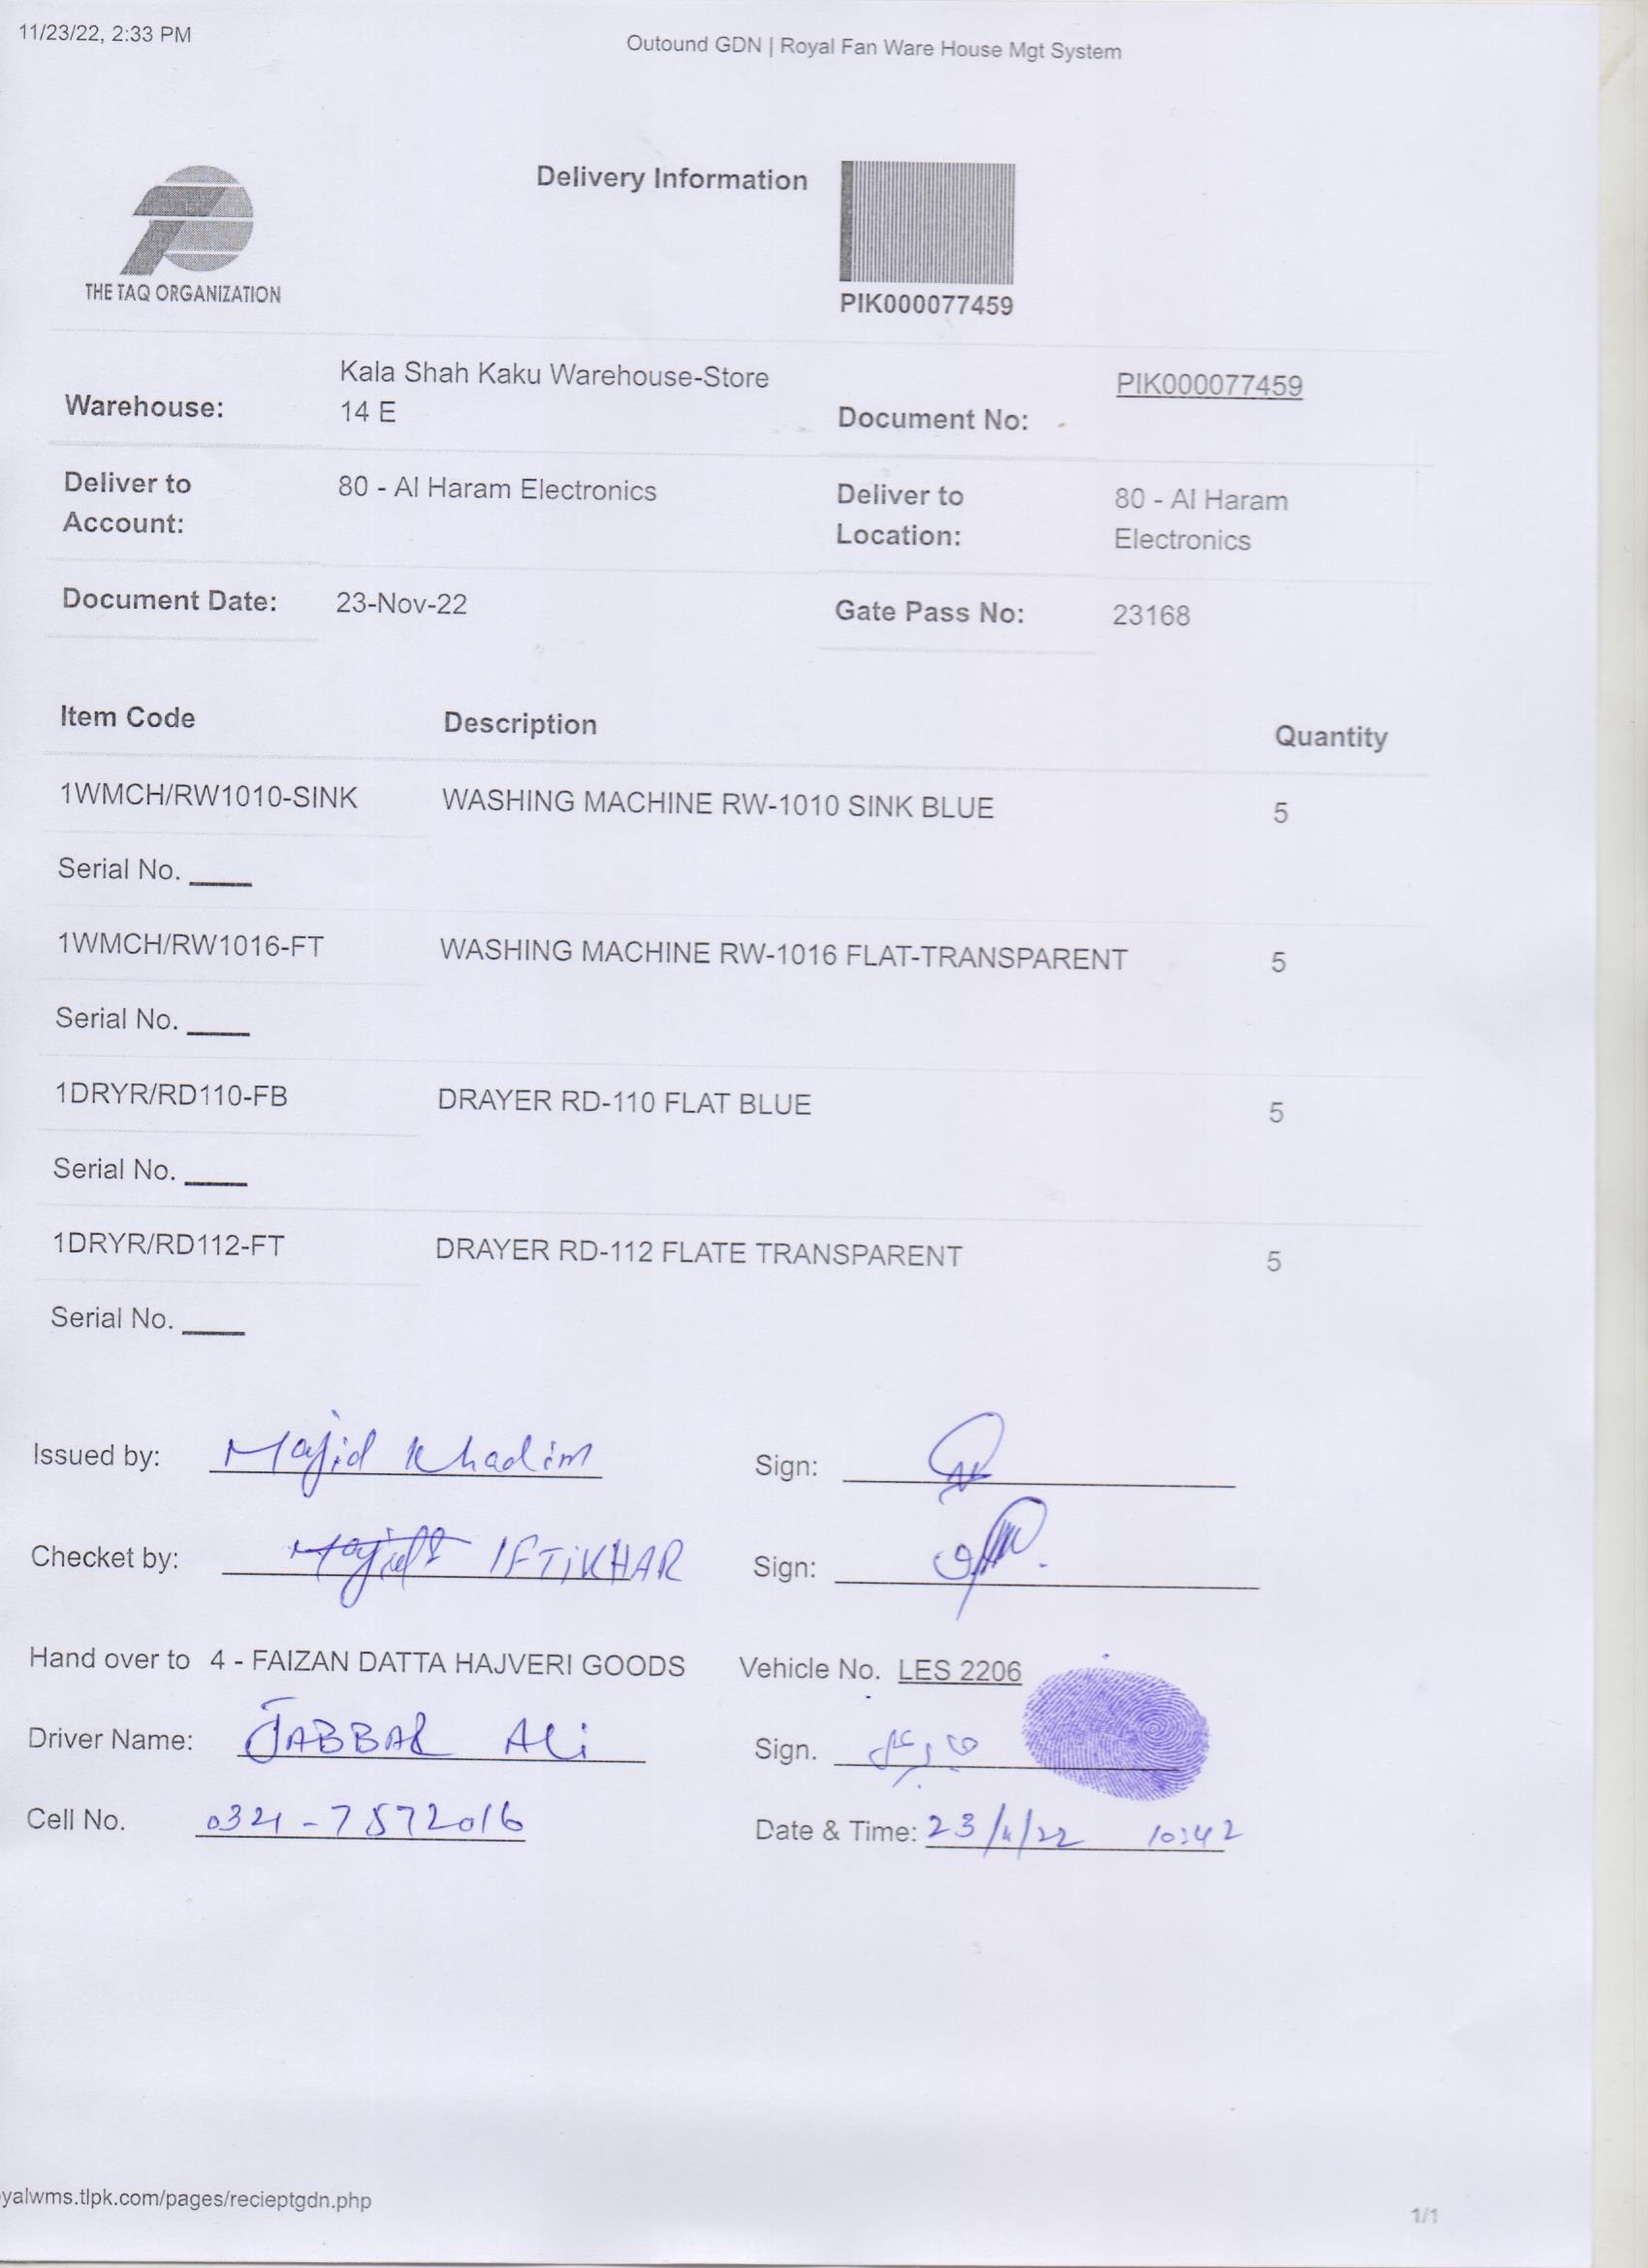 11/23/22, 2:33 PM
Outound GDN | Royal Fan Ware House Mgt System
THE TAQ ORGANIZATION
Delivery Information
PIK000077459
Warehouse: Kala Shah Kaku Warehouse-Store 14 E
Document No: PIK000077459
Deliver to Account: 80 - Al Haram Electronics
Deliver to Location: 80 - Al Haram Electronics
Document Date: 23-Nov-22
Gate Pass No: 23168
Item Code Description Quantity
1WMCH/RW1010-SINK WASHING MACHINE RW-1010 SINK BLUE 5
Serial No. ____
1WMCH/RW1016-FT WASHING MACHINE RW-1016 FLAT-TRANSPARENT 5
Serial No. ____
1DRYR/RD110-FB DRAYER RD-110 FLAT BLUE 5
Serial No. ____
1DRYR/RD112-FT DRAYER RD-112 FLATE TRANSPARENT 5
Serial No. ____
Issued by: Majid Khadim Sign:
Checket by: IFTIKHAR Sign:
Hand over to 4 - FAIZAN DATTA HAJVERI GOODS Vehicle No. LES 2206
Driver Name: JABBAR ALi Sign.
Cell No. 0321-7572016 Date & Time: 23/11/22 10:42
yalwms.tlpk.com/pages/recieptgdn.php
1/1